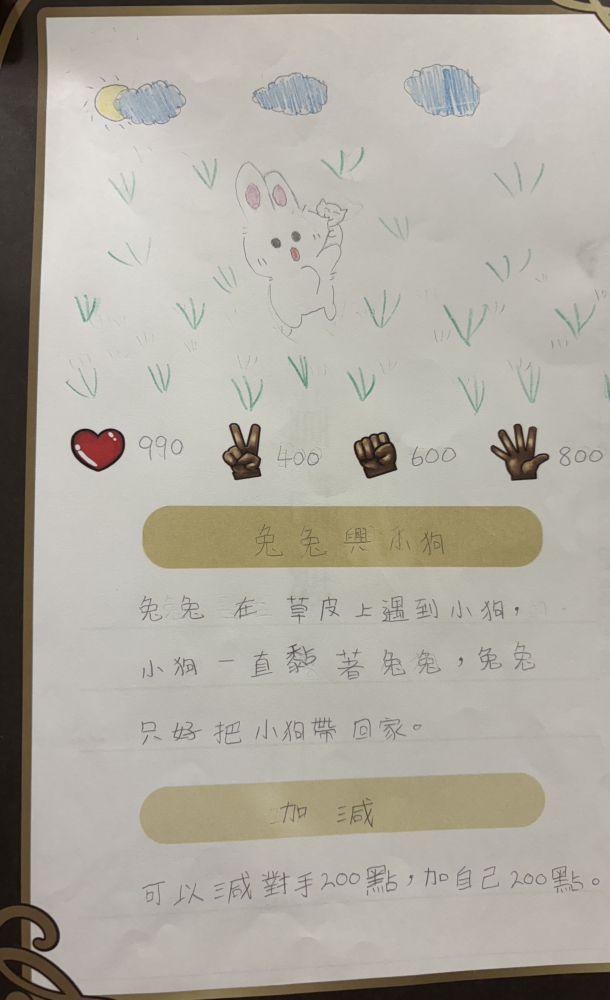 990 400 600 800
兔兔與小狗
兔兔在草皮上遇到小狗，
小狗一直黏著兔兔，兔兔
只好把小狗帶回家。
加減
可以減對手200點，加自己200點。